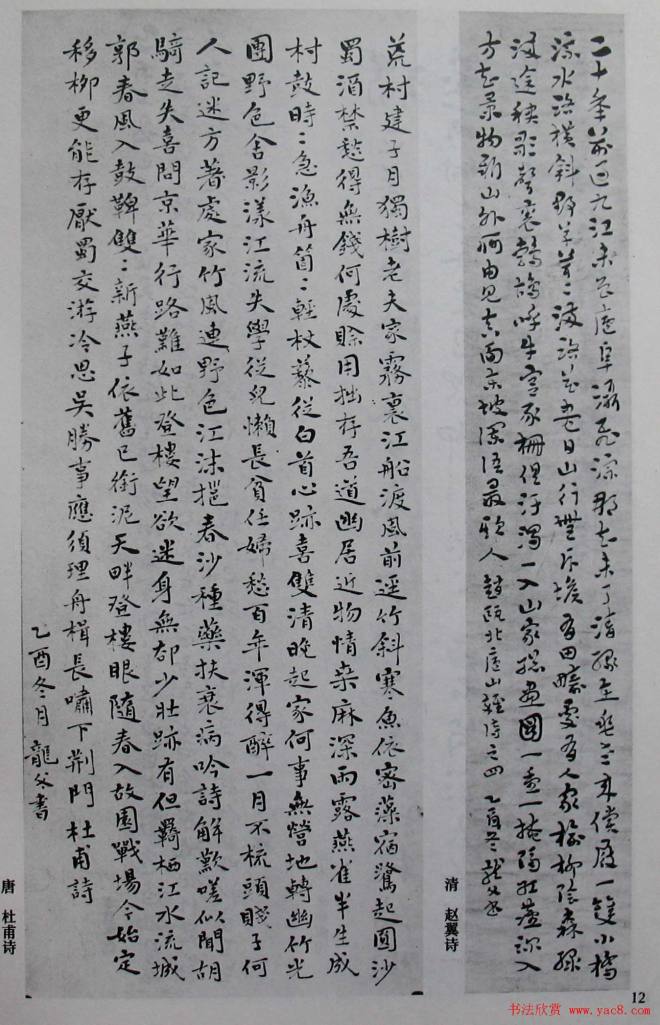 二十年前過九江未登廬阜濯飛淙那知未了清緣在垂老來償屐一雙小橋
流水路橫斜野草芊〻沒路花盡日山行無斥堠有田疇處有人家檜柳陰森綠
沒途秧歌聲裏鵓鴣呼牛宮豕柵但汙濁一入山家總畫圖一重一掩隔紅塵深入
方知景物新山外何由見真面東坡深語最欺人 趙甌北廬山雜詩之四 乙酉冬龍父書
清 赵翼诗
荒村建子月獨樹老夫家霧裏江船渡風前逕竹斜寒魚依密藻宿鷺起圓沙
蜀酒禁愁得無錢何處賒用拙存吾道幽居近物情桑麻深雨露燕雀半生成
村鼓時〻急漁舟箇〻輕杖藜從白首心跡喜雙清晚起家何事無營地轉幽竹光
團野色舍影漾江流失學從兒懶長貧任婦愁百年渾得醉一月不梳頭賤子何
人記迷方著處家竹風連野色江沫擁春沙種藥扶衰病吟詩解歎嗟似聞胡
騎走失喜問京華行路難如此登樓望欲迷身無却少壯跡有但羈栖江水流城
郭春風入鼓鞞雙〻新燕子依舊已銜泥天畔登樓眼隨春入故園戰場今始定
移柳更能存厭蜀交游冷思吳勝事應須理舟楫長嘯下荊門 杜甫詩
乙酉冬月 龍父書
唐 杜甫诗
12
书法欣赏 www.yac8.com